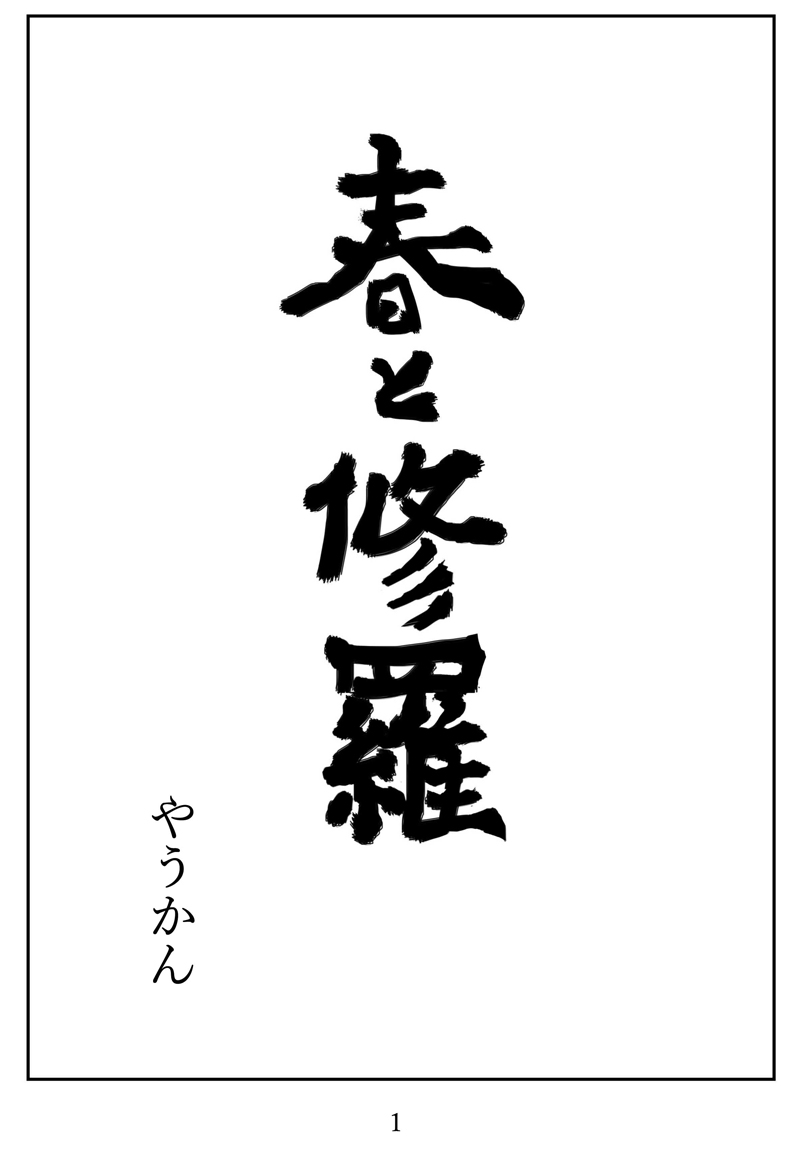 春と修羅
やうかん
1